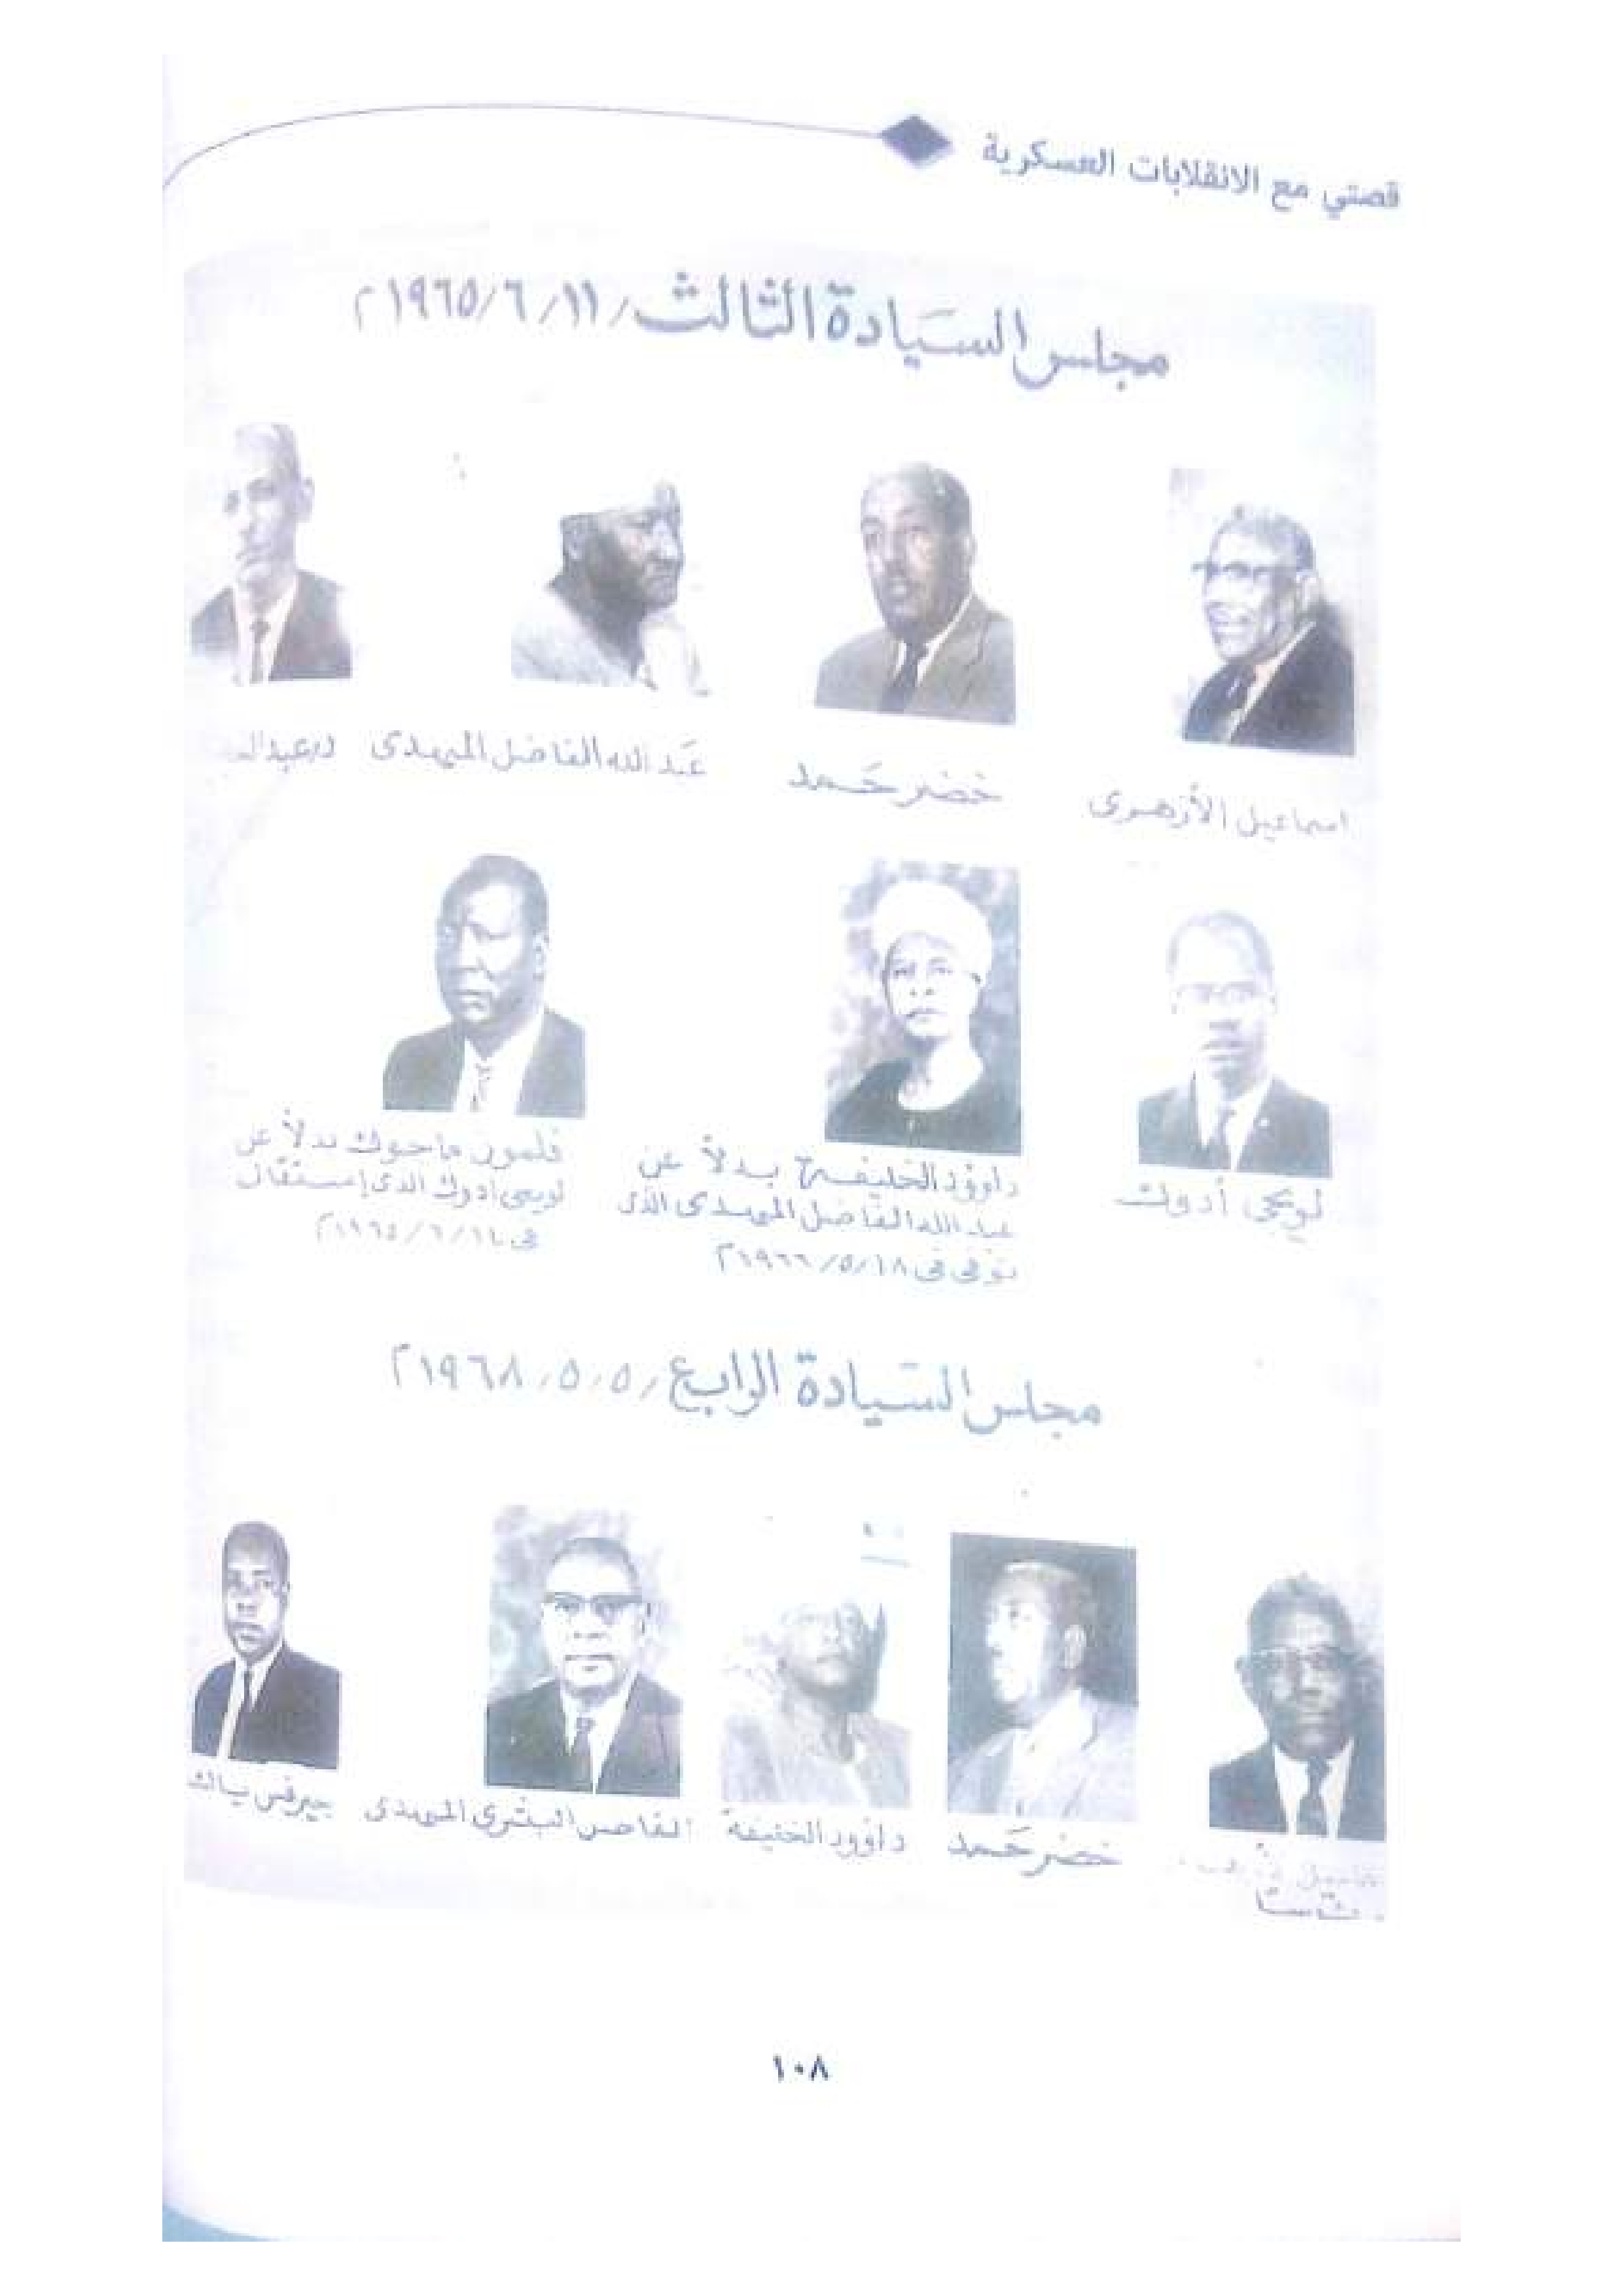 قصتي مع الانقلابات العسكرية
مجلس السيادة الثالث ١٩٦٥/٦/١١م
اسماعيل الأزهرى
خضر حمد
عبد الله الفاضل المهدى
د/عبدالـ
لويجى أدوك
داوود الخليفة بدلاً عن
عبد الله الفاضل المهدى الذى
توفى فى ١٩٦٦/٥/١٨م
فلمون ماجوك بدلاً عن
لويجى ادوك الذى إستقال
فى
مجلس السيادة الرابع ١٩٦٨/٥/٥م
خضر حمد
داوود الخليفة
الفاضل البشرى المهدى
جيرفس ياك
١٠٨